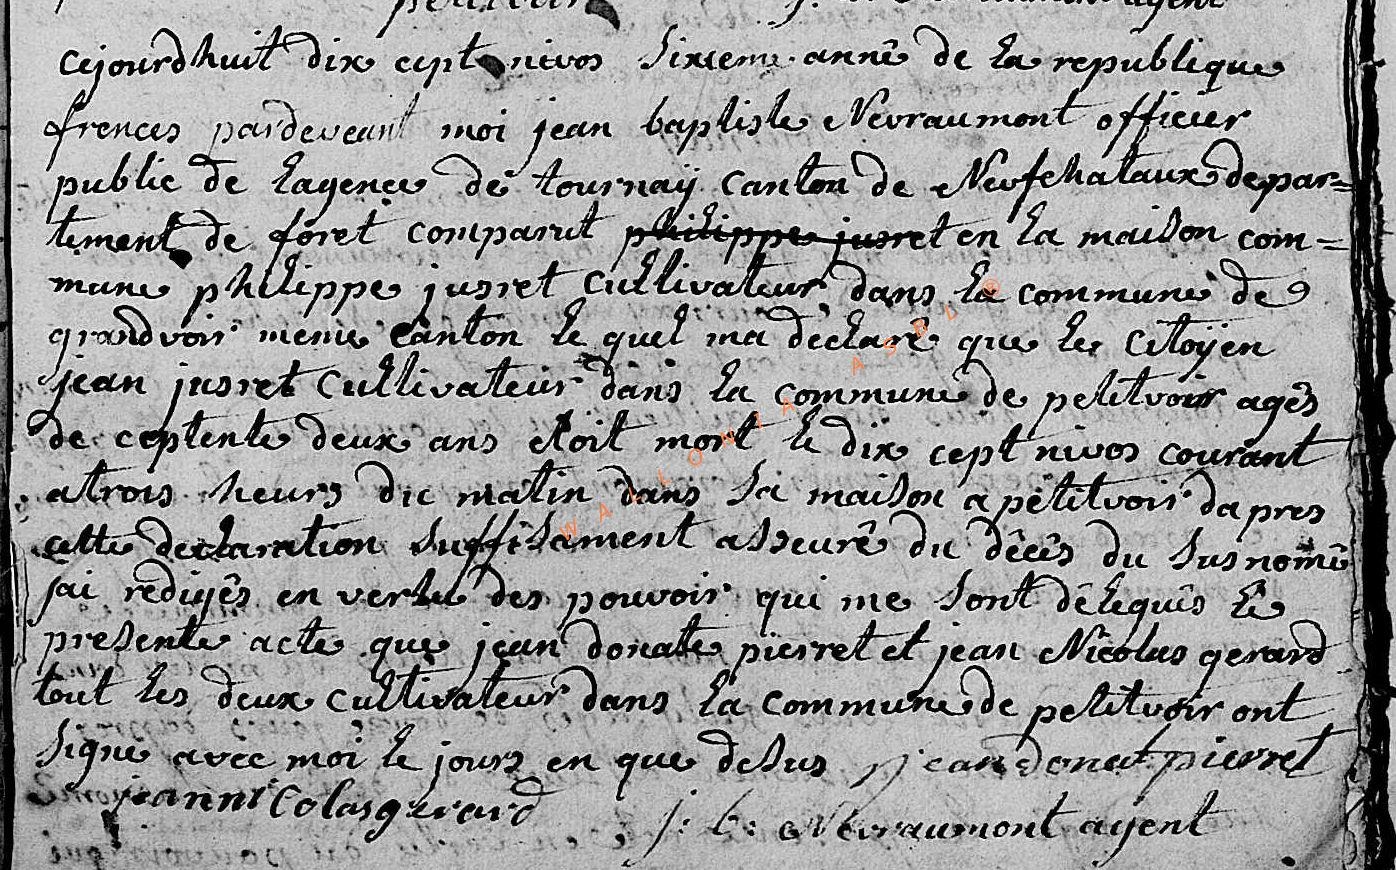 cejourdhuit dix cept nivos sixieme anné de la republique
frences pardeveant moi jean baptiste Nevraumont officier
public de lagence de tournaÿ canton de Neufchataux depar=
tement de foret comparut philippe jusret en la maison com=
mune philippe jusret cullivateur dans la commune de
grandvoir meme canton le quel ma déclaré que le citoÿen
jean jusret cullivateur dans la commune de petitvoir agés
de ceptente deux ans etoit mort le dix cept nivos courant
a trois heurs du matin dans sa maison a petitvoir dapres
cette declaration suffisament asseuré du décés du susnomé
jai redigés en vertu des pouvoir qui me sont délequés le
presente acte que jean donate pierret et jean Nicolas gerard
tout les deux cultivateur dans la commune de petitvoir ont
signe avec moi le jours en que desus jean donat pierret
jeanni colas gerard j: b: Nevraumont agent
WALLONIA ASBL ®